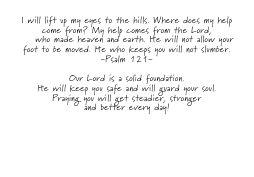 I will lift up my eyes to the hills. Where does my help
come from? My help comes from the Lord,
who made heaven and earth. He will not allow your
foot to be moved. He who keeps you will not slumber.
-Psalm 121-
Our Lord is a solid foundation.
He will keep you safe and will guard your soul.
Praying you will get steadier, stronger
and better every day!